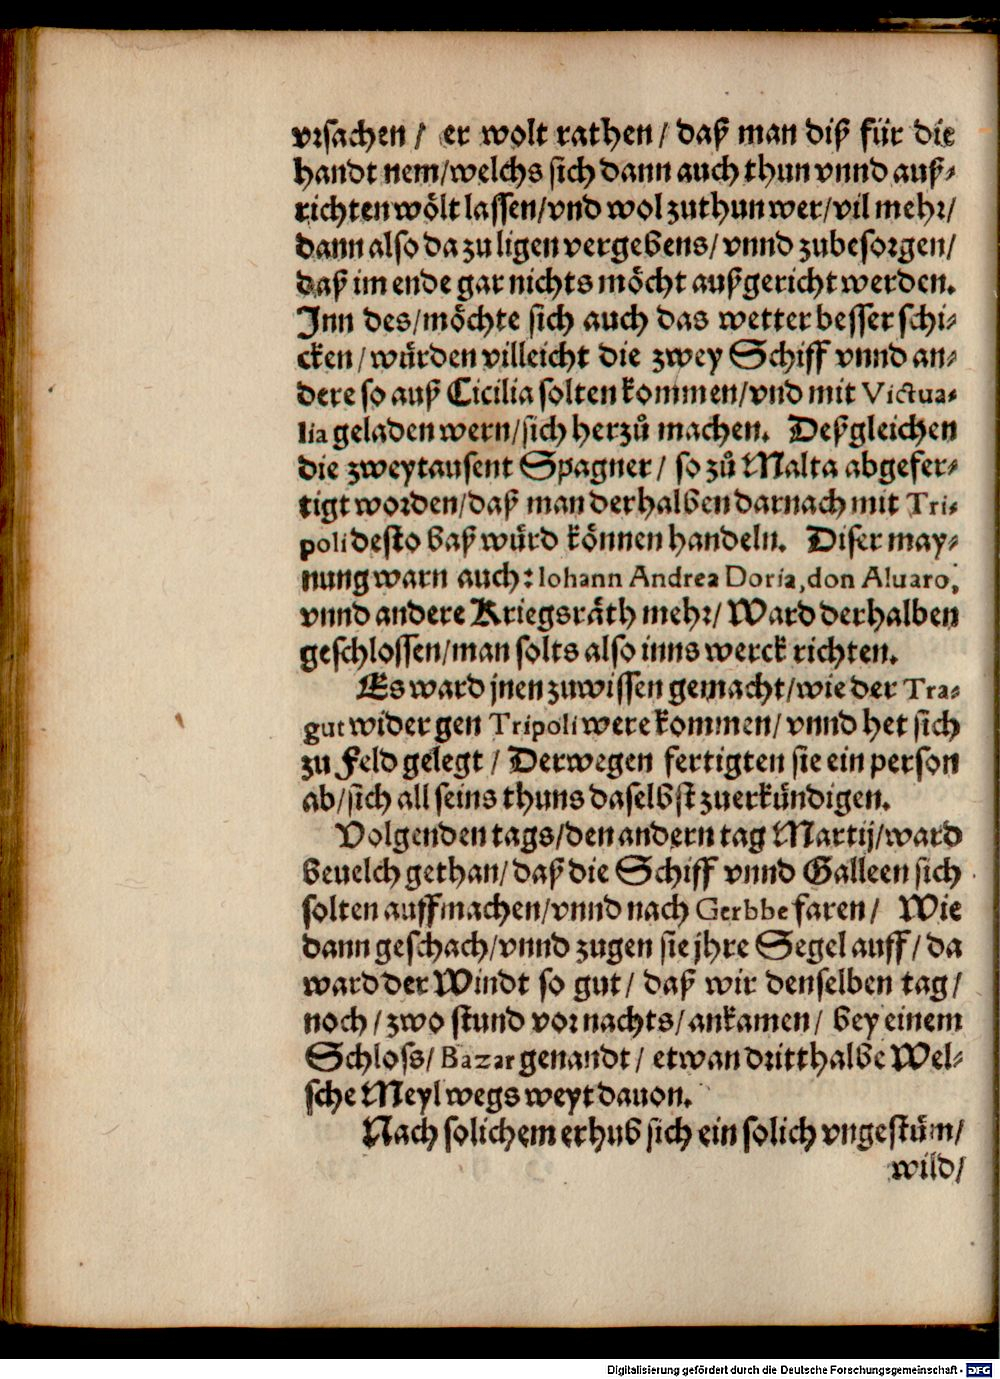 vrsachen / er wolt rathen / daß man diß für die
handt nem/welchs sich dann auch thun vnnd auß⸗
richten wölt lassen/vnd wol zuthun wer/vil mehr/
dann also da zu ligen vergebens/vnnd zubesorgen/
daß im ende gar nichts möcht außgericht werden.
Inn des/möchte sich auch das wetter besser schi⸗
cken/würden villeicht die zwey Schiff vnnd an⸗
dere so auß Cicilia solten kommen/vnd mit Victua⸗
lia geladen wern/sich herzů machen. Deßgleichen
die zweytausent Spagner/ so zů Malta abgefer⸗
tigt worden/daß man derhalben darnach mit Tri⸗
poli desto baß würd können handeln. Diser may⸗
nung warn auch: Iohann Andrea Doria, don Aluaro,
vnnd andere Kriegsräth mehr/Ward derhalben
geschlossen/man solts also inns werck richten.
Es ward jnen zuwissen gemacht/wie der Tra⸗
gut wider gen Tripoli were kommen/vnnd het sich
zu Feld gelegt / Derwegen fertigten sie ein person
ab/sich all seins thuns daselbst zuerkündigen.
Volgenden tags/den andern tag Martij/ward
beuelch gethan/daß die Schiff vnnd Galleen sich
solten auffmachen/vnnd nach Gerbbe faren/ Wie
dann geschach/vnnd zugen sie jhre Segel auff/da
ward der Windt so gut/ daß wir denselben tag/
noch/zwo stund vor nachts/ankamen/ bey einem
Schloss/Bazar genandt/ etwan dritthalbe Wel⸗
sche Meyl wegs weyt dauon.
Nach solichem erhub sich ein solich vngestüm/
wild/
Digitalisierung gefördert durch die Deutsche Forschungsgemeinschaft - DFG